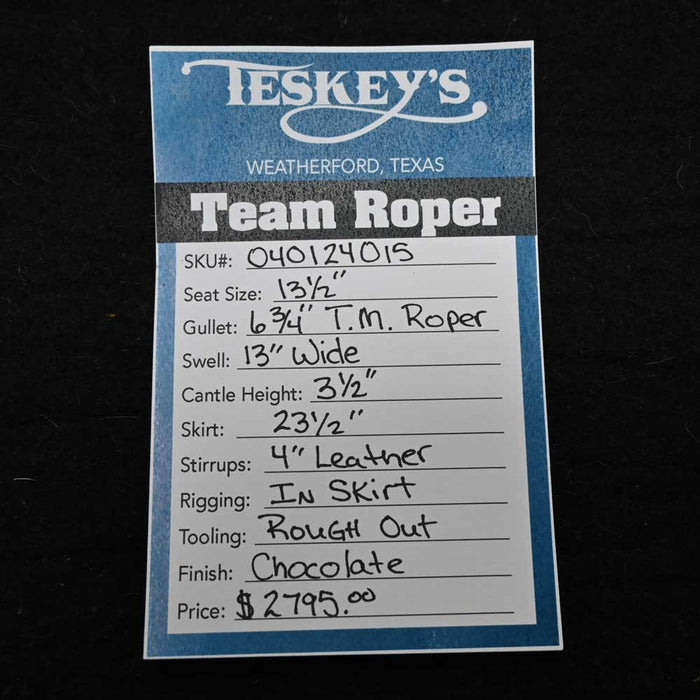 TESKEY'S
WEATHERFORD, TEXAS
Team Roper
SKU#: 040124015
Seat Size: 13½"
Gullet: 6¾" T.M. Roper
Swell: 13" Wide
Cantle Height: 3½"
Skirt: 23½"
Stirrups: 4" Leather
Rigging: IN SKirt
Tooling: ROUGH Out
Finish: Chocolate
Price: $2795.00